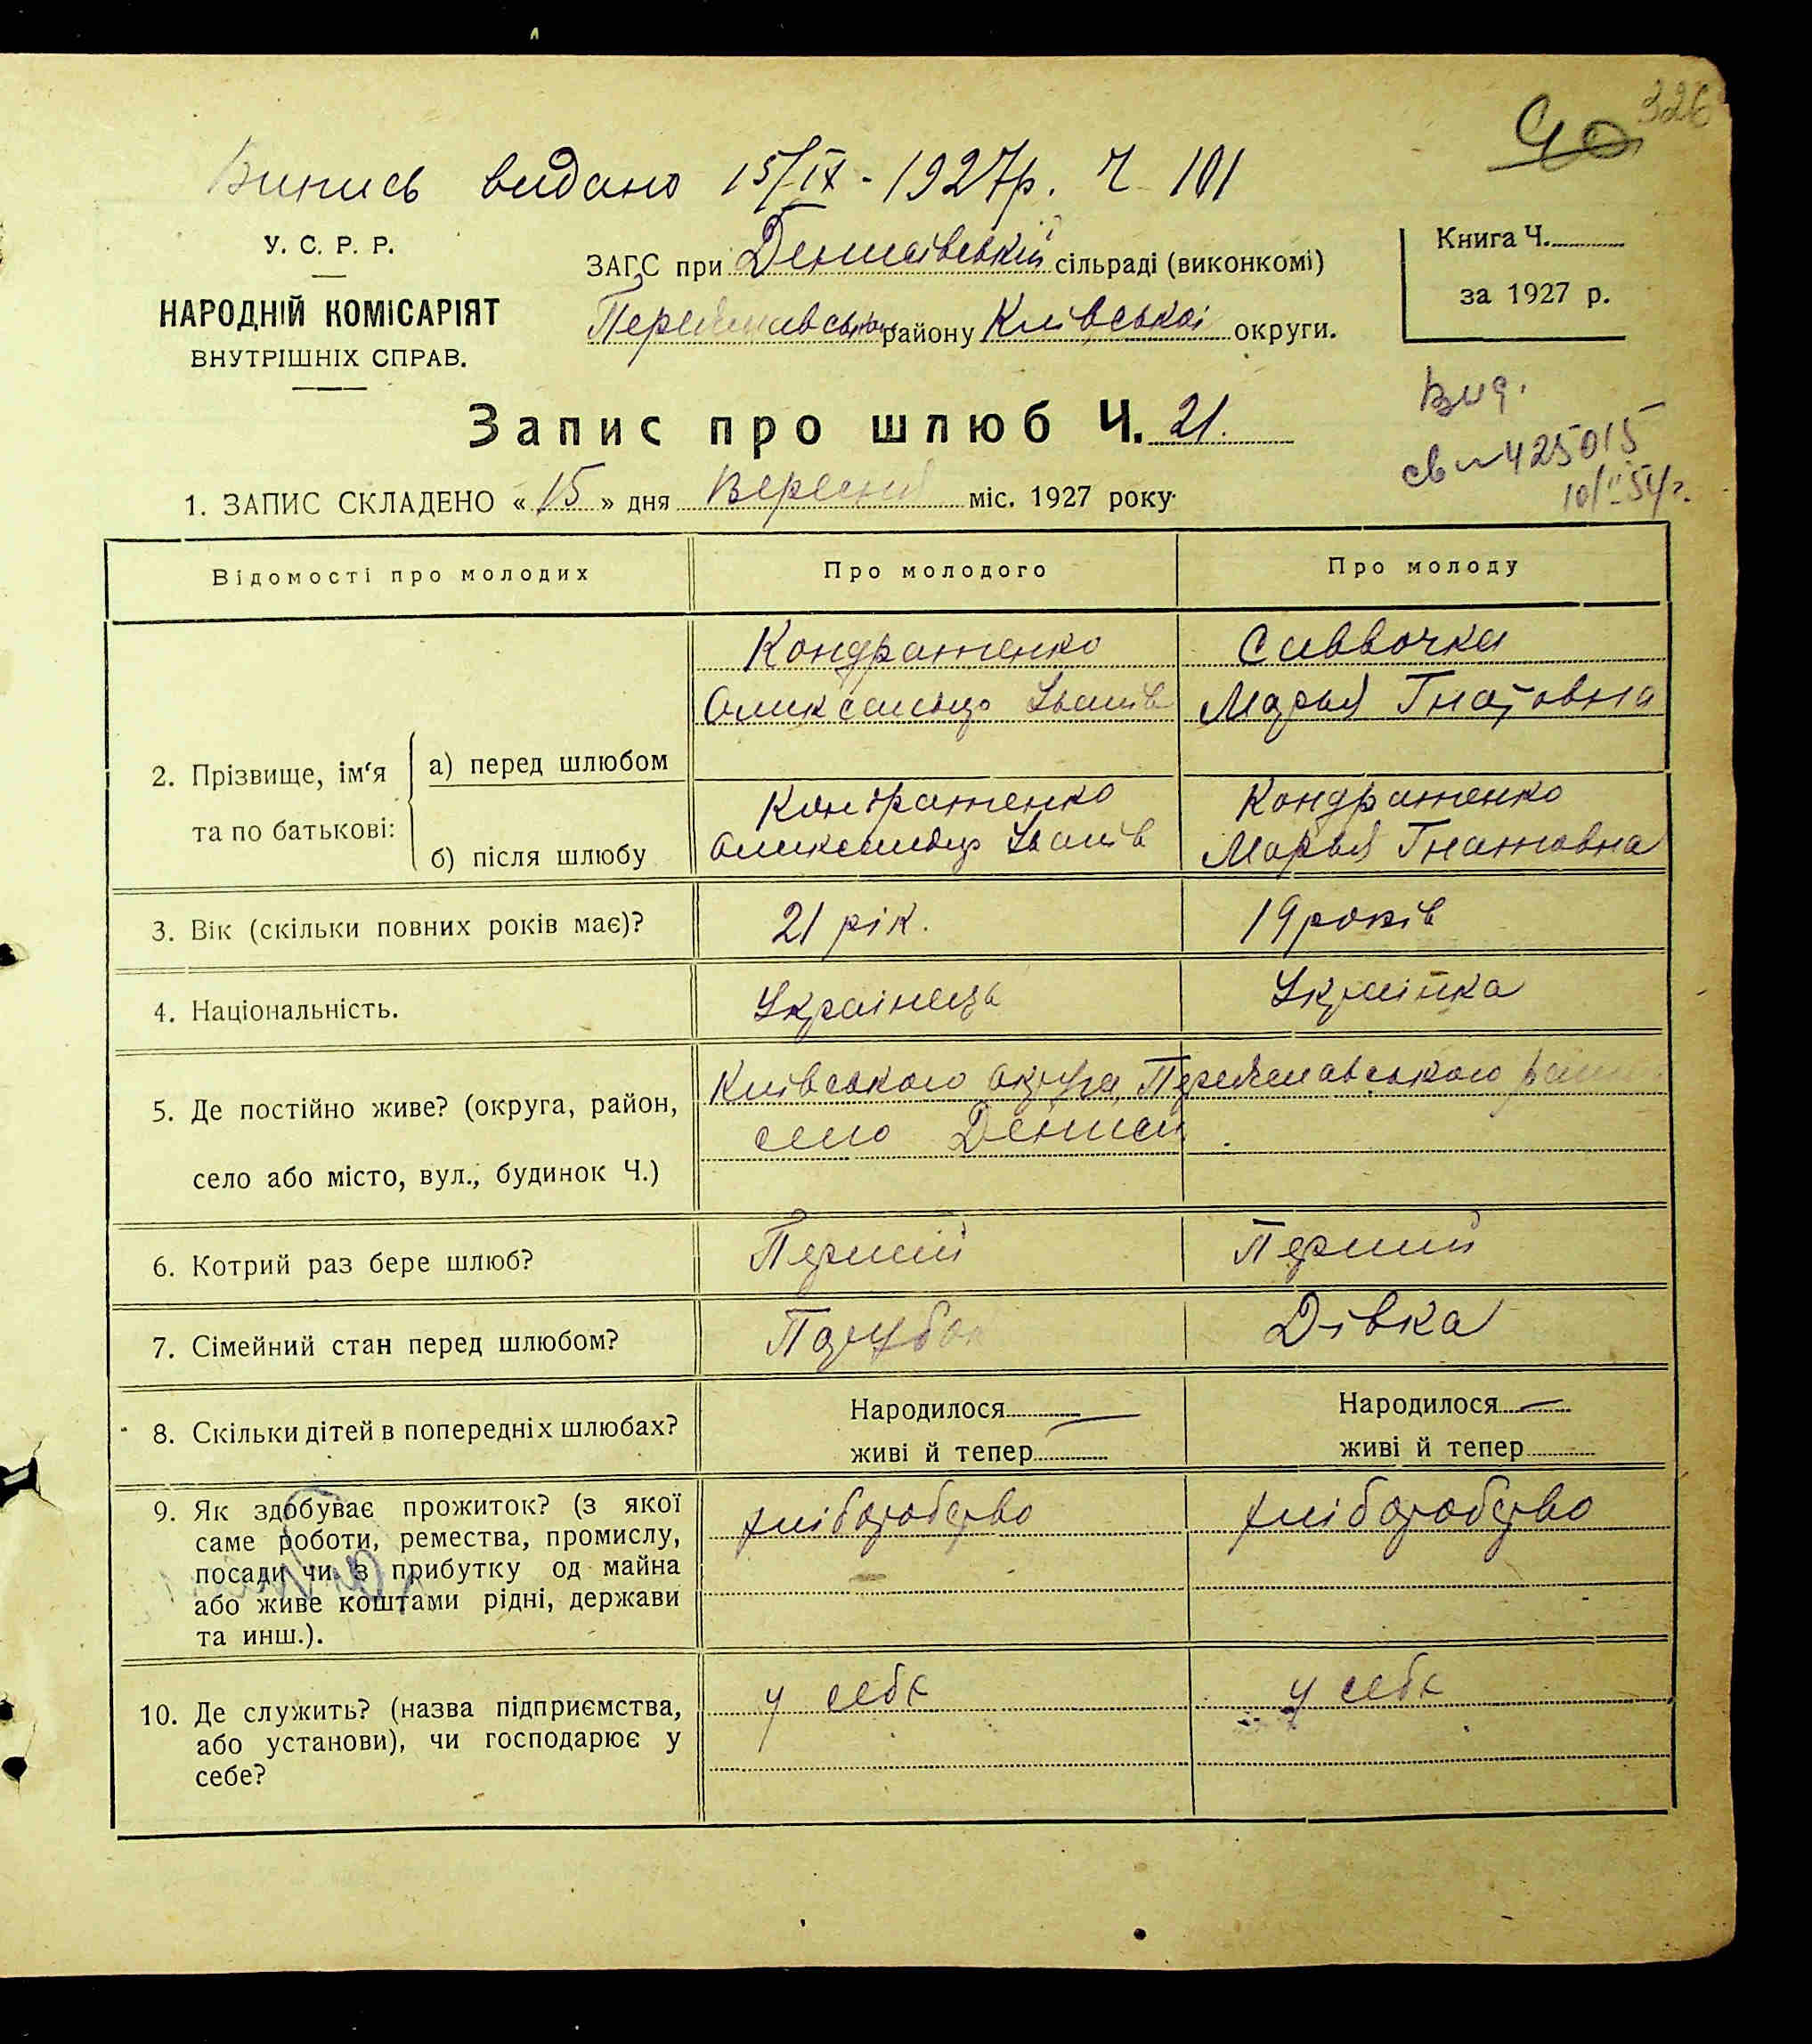 326
40
Випись видано 15/IX - 1927р. Ч 101
У. С. Р. Р.
НАРОДНІЙ КОМІСАРІЯТ
ВНУТРІШНІХ СПРАВ.
ЗАГС при Денисівській сільраді (виконкомі)
Переяславськ району Київської округи.
Книга Ч.
за 1927 р.
Запис про шлюб Ч. 21.
Вид.
св 425015
10/II 54 г.
1. ЗАПИС СКЛАДЕНО « 15 » дня Вересня міс. 1927 року
Відомості про молодих Про молодого Про молоду
2. Прізвище, ім‘я та по батькові:
а) перед шлюбом
Кондратенко
Олександр Іванів
Саввочка
Марья Гнатовна
б) після шлюбу
Кондратенко
Олександр Іванів
Кондратенко
Марья Гнатовна
3. Вік (скільки повних років має)? 21 рік. 19 років
4. Національність. Українець Українка
5. Де постійно живе? (округа, район,
село або місто, вул., будинок Ч.)
Київського округа, Переяславського
село Дениси
6. Котрий раз бере шлюб? Перший Перший
7. Сімейний стан перед шлюбом? Парубок Дівка
8. Скільки дітей в попередніх шлюбах?
Народилося —
живі й тепер
Народилося —
живі й тепер
9. Як здобуває прожиток? (з якої
саме роботи, ремества, промислу,
посади чи з прибутку од майна
або живе коштами рідні, держави
та инш.).
хліборобство хліборобство
10. Де служить? (назва підприємства,
або установи), чи господарює у
себе?
у себе у себе